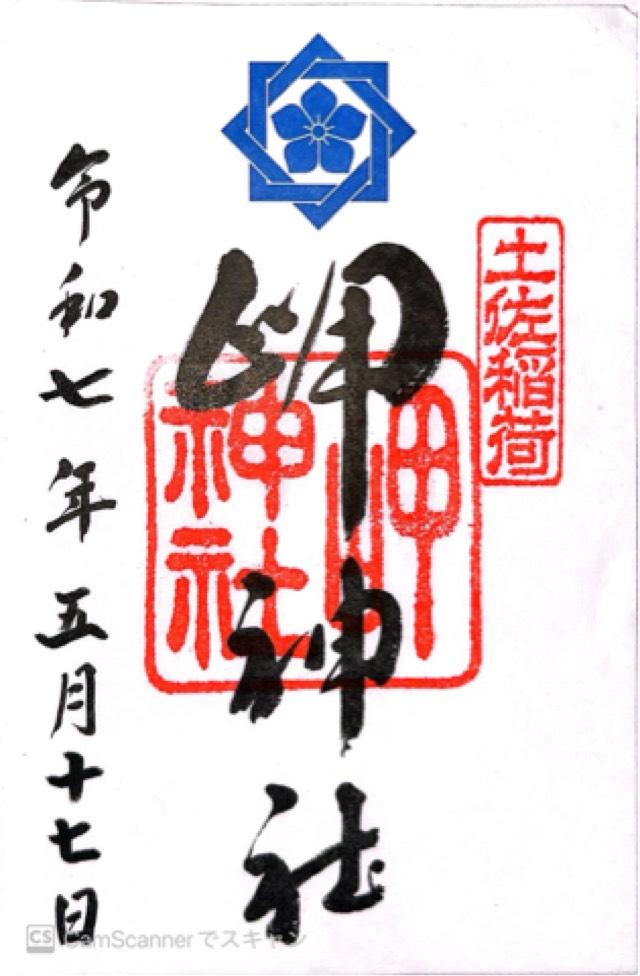 土佐稲荷
岬神社
岬
神社
令和七年五月十七日
CS CamScannerでスキャン